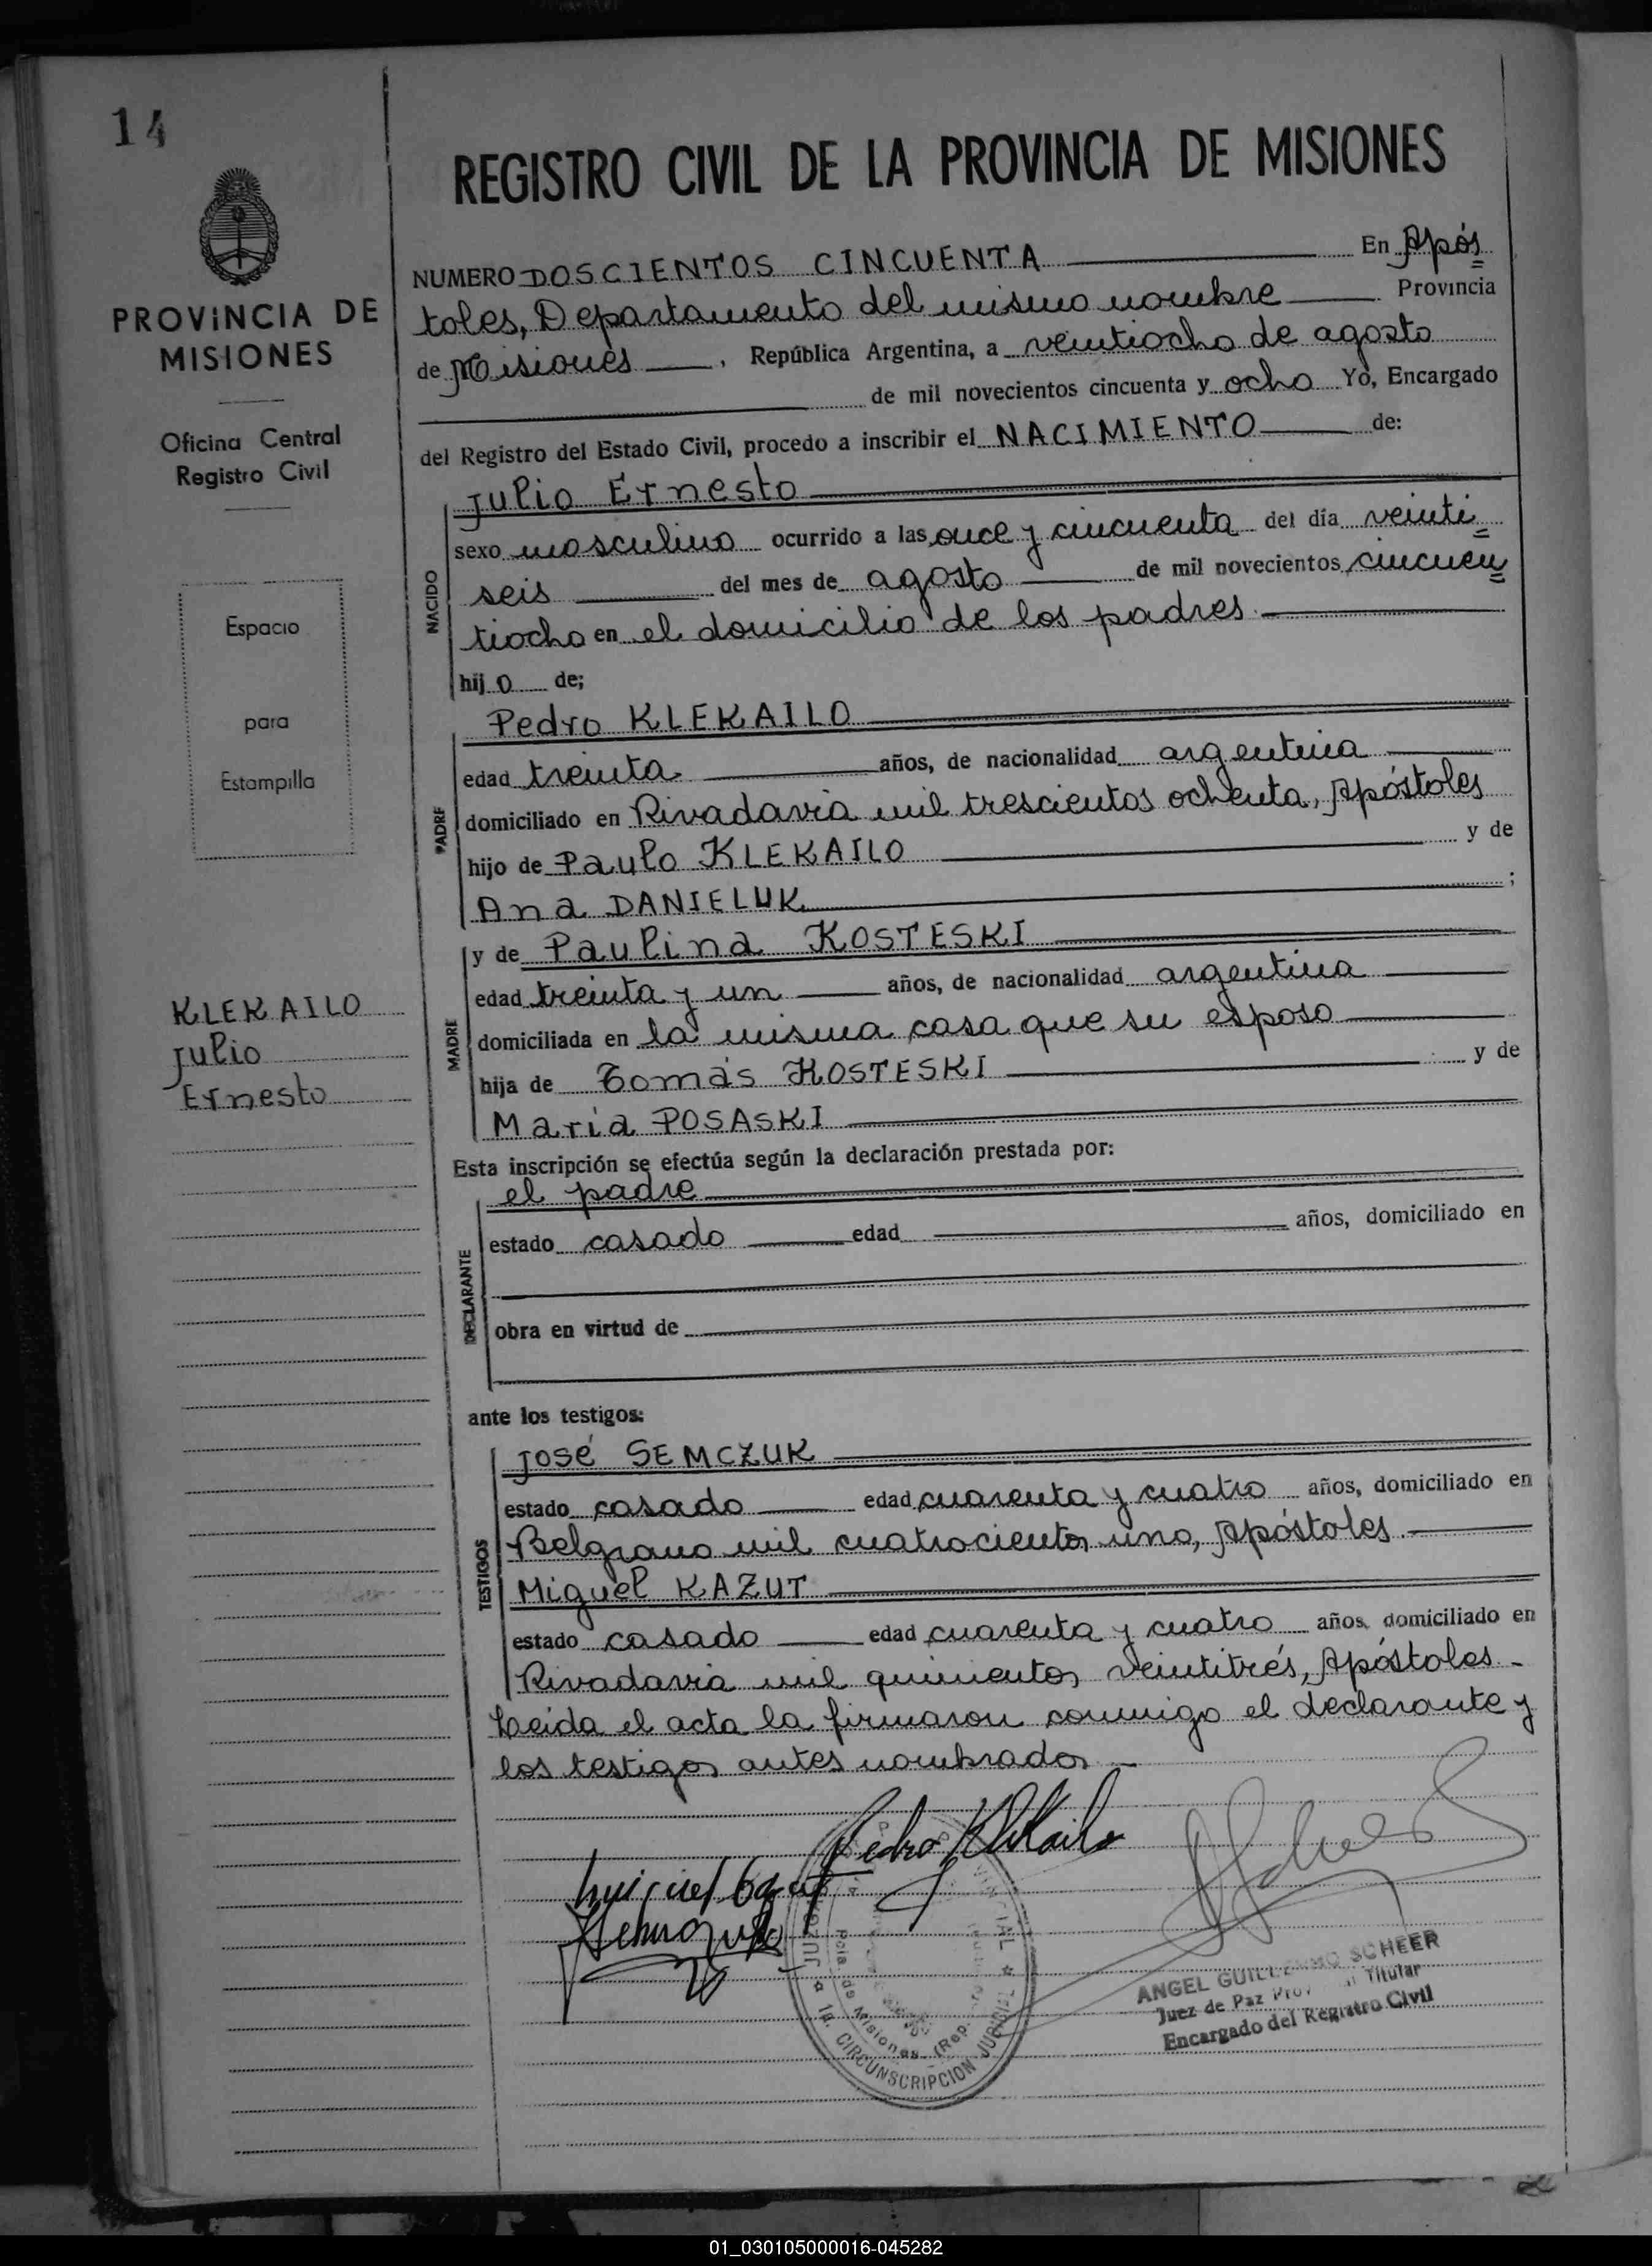 14
PROVINCIA DE
MISIONES
Oficina Central
Registro Civil
Espacio
para
Estampilla
KLEKAILO
Julio
Ernesto
REGISTRO CIVIL DE LA PROVINCIA DE MISIONES
NUMERO DOSCIENTOS CINCUENTA En Após
toles, Departamento del mismo nombre Provincia
de Misiones, República Argentina, a veintiocho de agosto
de mil novecientos cincuenta y ocho Yo, Encargado
del Registro del Estado Civil, procedo a inscribir el NACIMIENTO de:
NACIDO
Julio Ernesto
sexo masculino ocurrido a las once y cincuenta del día veinti
seis del mes de agosto de mil novecientos cincuen
tiocho en el domicilio de los padres
hijo de;
PADRE
Pedro KLEKAILO
edad treinta años, de nacionalidad argentina
domiciliado en Rivadavia mil trescientos ochenta, Apóstoles
hijo de Paulo KLEKAILO y de
Ana DANIELUK ;
MADRE
y de Paulina KOSTESKI
edad treinta y un años, de nacionalidad argentina
domiciliada en la misma casa que su esposo
hija de Tomás KOSTESKI y de
María POSASKI
Esta inscripción se efectúa según la declaración prestada por:
DECLARANTE
el padre
estado casado edad años, domiciliado en
obra en virtud de
ante los testigos:
TESTIGOS
José SEMCZUK
estado casado edad cuarenta y cuatro años, domiciliado en
Belgrano mil cuatrocientos uno, Apóstoles.
Miguel KAZUT
estado casado edad cuarenta y cuatro años, domiciliado en
Rivadavia mil quinientos veintitrés, Apóstoles.-
Leída el acta la firmaron conmigo el declarante y
los testigos antes nombrados.-
Pedro Klekailo
ANGEL GUILLERMO SCHEER
Juez de Paz Titular
Encargado del Registro Civil
1a. CIRCUNSCRIPCION
de Misiones (Rep.
01_030105000016-045282